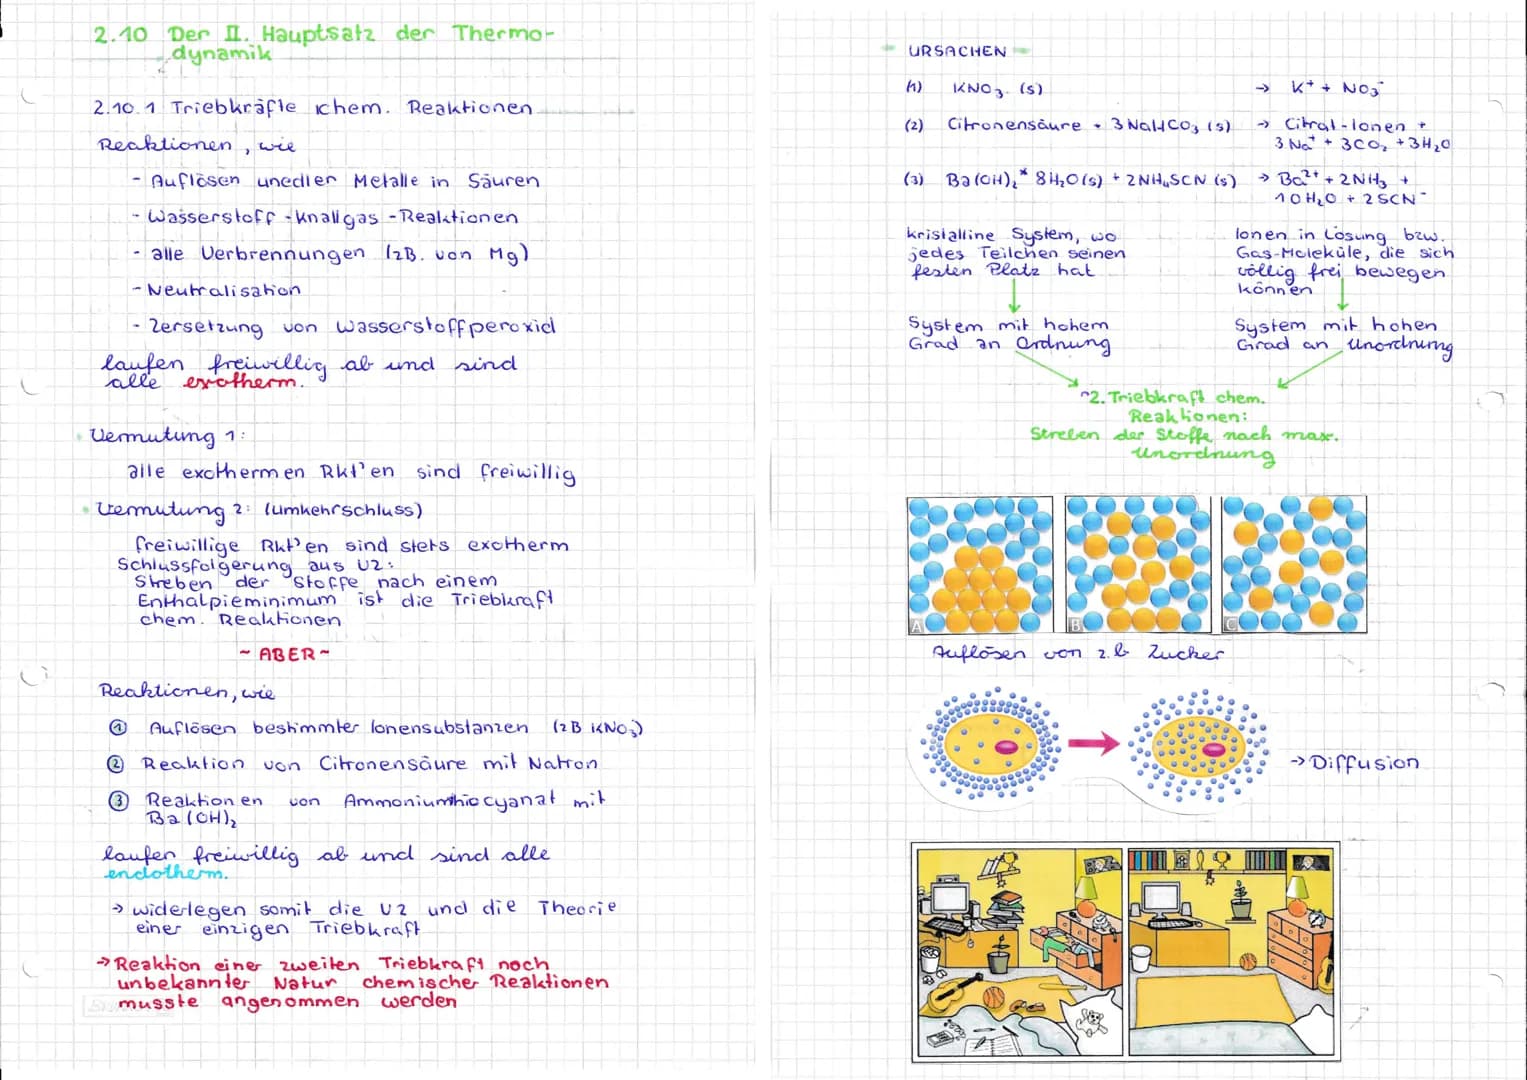 2.10 Der II. Hauptsatz der Thermo-
dynamik
2.10.1 Triebkräfte chem. Reaktionen
Reaktionen, wie
- Auflösen unedler Metalle in Säuren
- Wasserstoff-Knallgas-Reaktionen
- alle Verbrennungen (zB. von Mg)
- Neutralisation
- Zersetzung von Wasserstoffperoxid
laufen freiwillig ab und sind
alle exotherm.
Vermutung 1:
alle exothermen Rkt'en sind freiwillig
Vermutung 2: (Umkehrschluss)
freiwillige Rkt'en sind stets exotherm
Schlussfolgerung aus V2:
Streben der Stoffe nach einem
Enthalpieminimum ist die Triebkraft
chem. Reaktionen
~ ABER ~
Reaktionen, wie
① Auflösen bestimmter Ionensubstanzen (zB KNO₃)
② Reaktion von Citronensäure mit Natron
③ Reaktionen von Ammoniumthiocyanat mit
Ba(OH)₂
laufen freiwillig ab und sind alle
endotherm.
→ widerlegen somit die V2 und die Theorie
einer einzigen Triebkraft
→ Reaktion einer zweiten Triebkraft noch
unbekannter Natur chemischer Reaktionen
musste angenommen werden
URSACHEN
(1) KNO₃ (s) → K⁺ + NO₃⁻
(2) Citronensäure + 3 NaHCO₃ (s) → Citrat-Ionen +
3 Na⁺ + 3CO₂ + 3H₂O
(3) Ba(OH)₂ * 8H₂O (s) + 2NH₄SCN (s) → Ba²⁺ + 2NH₃ +
10 H₂O + 2 SCN⁻
kristalline System, wo
jedes Teilchen seinen
festen Platz hat
Ionen in Lösung bzw.
Gas-Moleküle, die sich
völlig frei bewegen
können
System mit hohem
Grad an Ordnung
System mit hohen
Grad an Unordnung
2. Triebkraft chem.
Reaktionen:
Streben der Stoffe nach max.
Unordnung
A
B
C
Auflösen von z.b Zucker
→ Diffusion